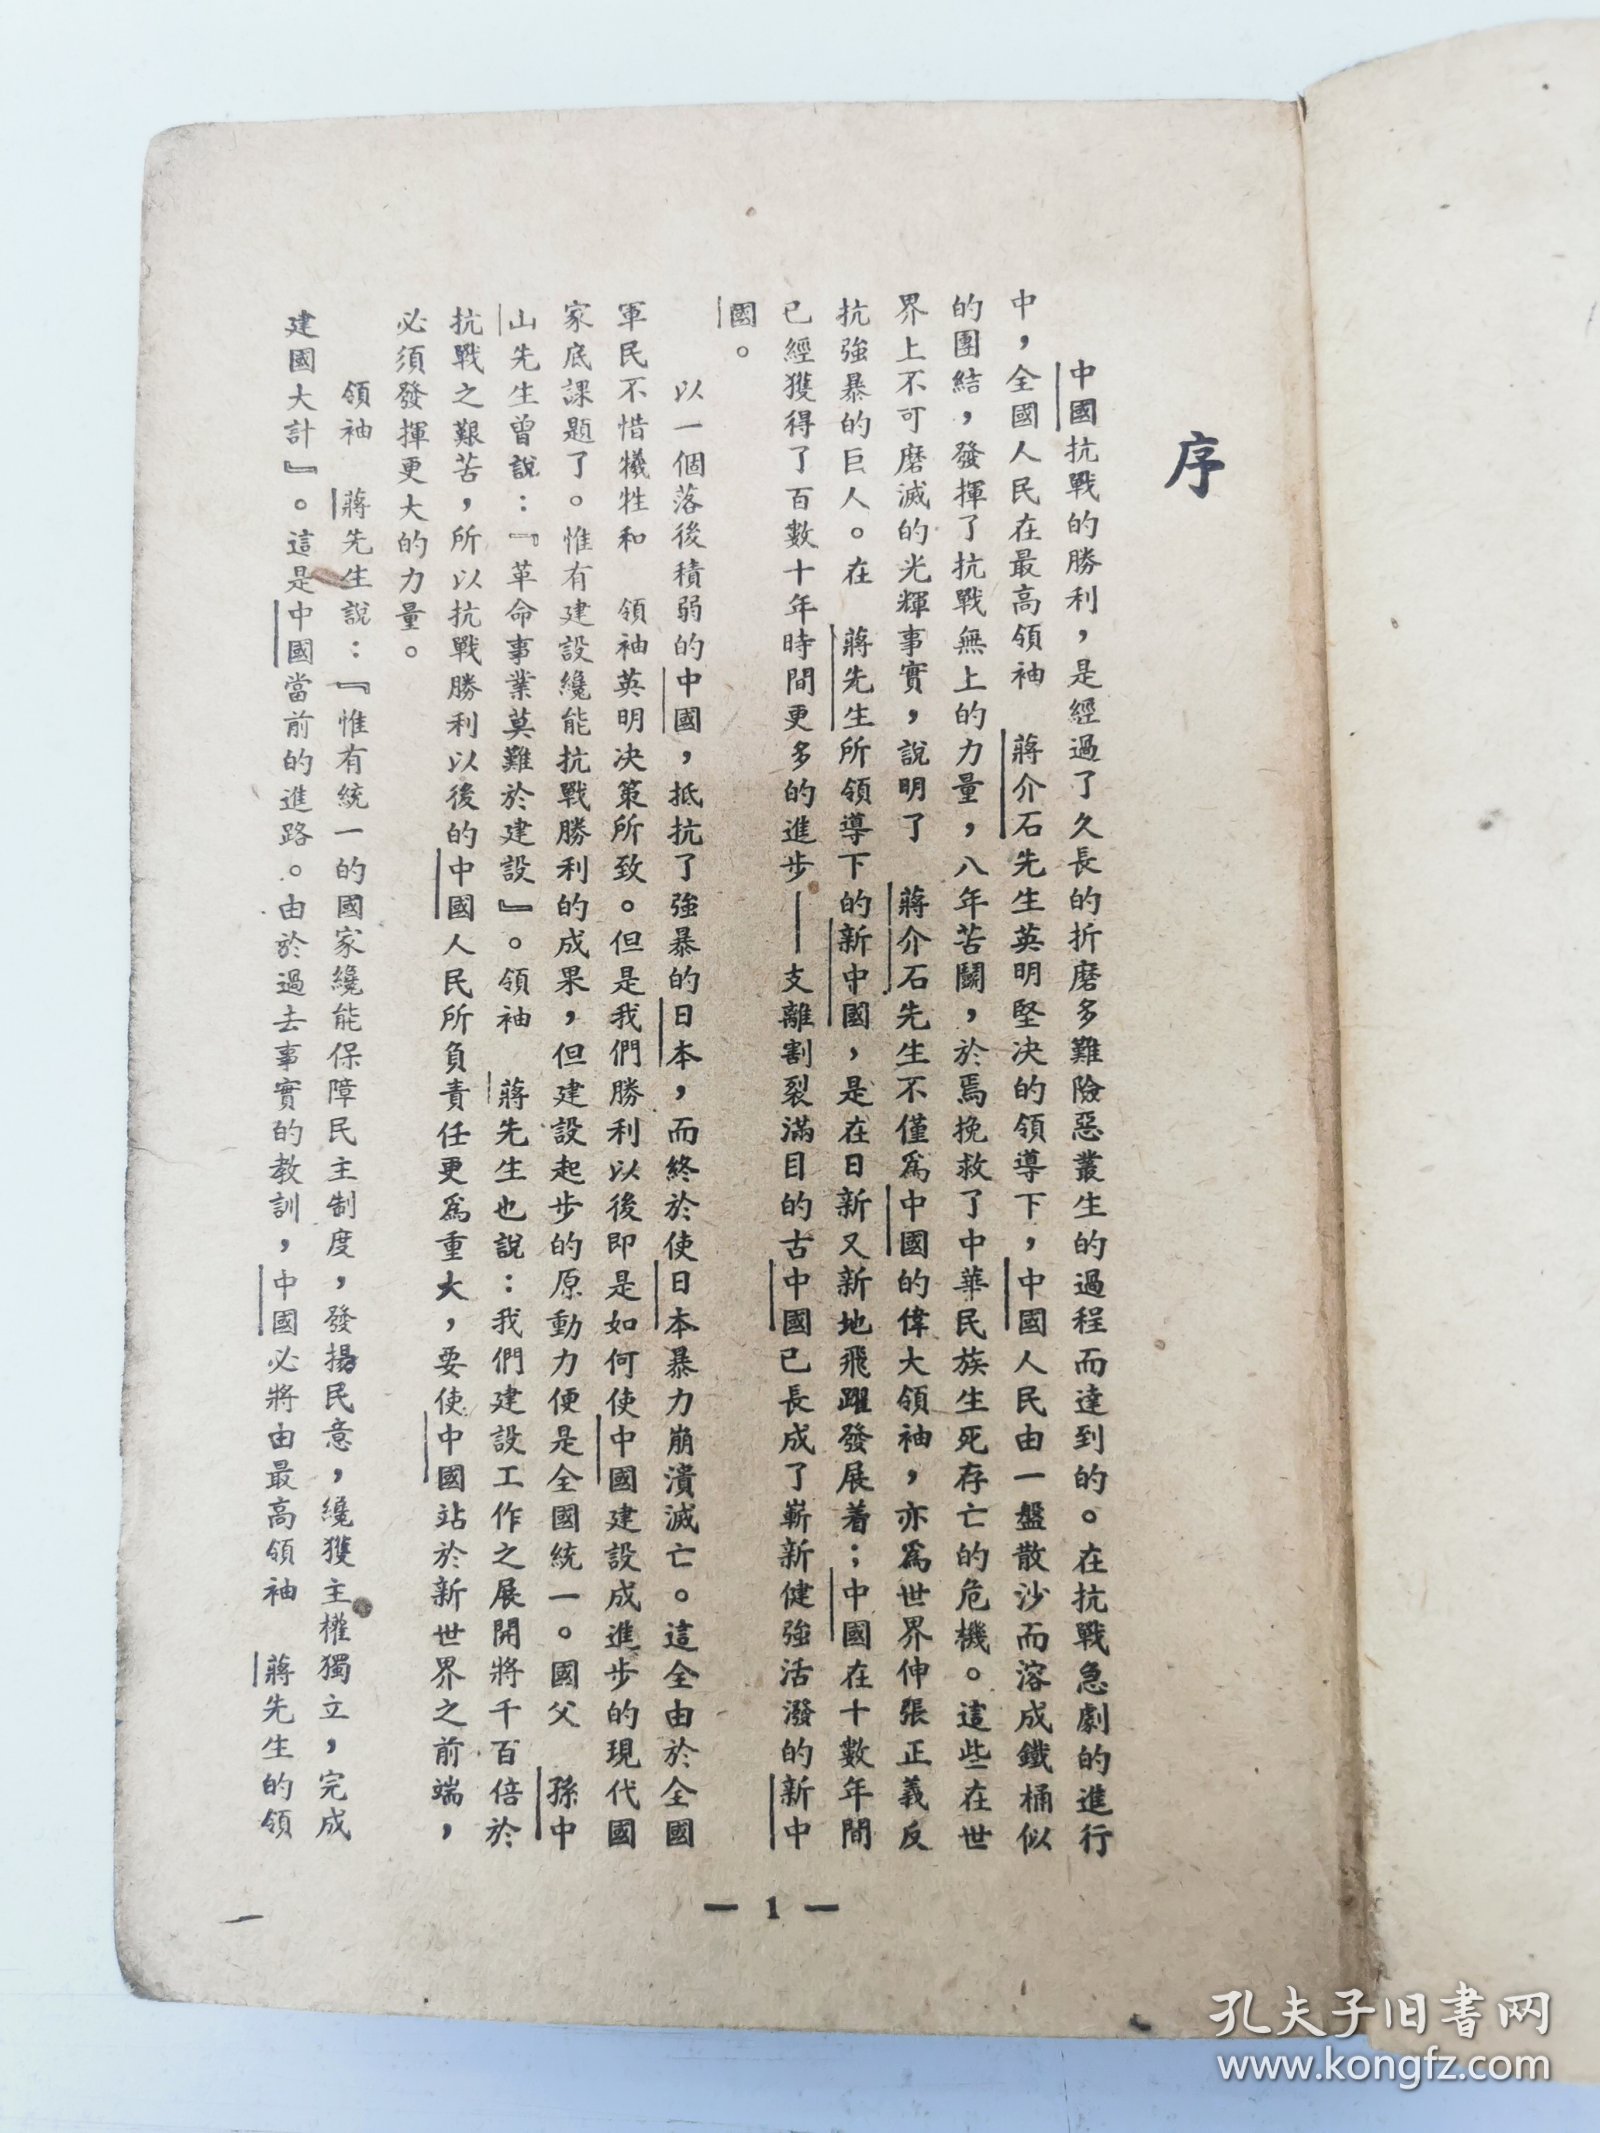 序
中國抗戰的勝利，是經過了久長的折磨多難險惡叢生的過程而達到的。在抗戰急劇的進行
中，全國人民在最高領袖　蔣介石先生英明堅决的領導下，中國人民由一盤散沙而溶成鐵桶似
的團結，發揮了抗戰無上的力量，八年苦鬭，於焉挽救了中華民族生死存亡的危機。這些在世
界上不可磨滅的光輝事實，說明了　蔣介石先生不僅爲中國的偉大領袖，亦爲世界伸張正義反
抗強暴的巨人。在　蔣先生所領導下的新中國，是在日新又新地飛躍發展着；中國在十數年間
已經獲得了百數十年時間更多的進步——支離割裂滿目的古中國已長成了嶄新健強活潑的新中
國。
以一個落後積弱的中國，抵抗了強暴的日本，而終於使日本暴力崩潰滅亡。這全由於全國
軍民不惜犧牲和　領袖英明决策所致。但是我們勝利以後即是如何使中國建設成進步的現代國
家底課題了。惟有建設纔能抗戰勝利的成果，但建設起步的原動力便是全國統一。國父　孫中
山先生曾說：『革命事業莫難於建設』。領袖　蔣先生也說：我們建設工作之展開將千百倍於
抗戰之艱苦，所以抗戰勝利以後的中國人民所負責任更爲重大，要使中國站於新世界之前端，
必須發揮更大的力量。
領袖　蔣先生說：『惟有統一的國家纔能保障民主制度，發揚民意，纔獲主權獨立，完成
建國大計』。這是中國當前的進路。由於過去事實的教訓，中國必將由最高領袖　蔣先生的領
— 1 —
孔夫子旧書网
www.kongfz.com